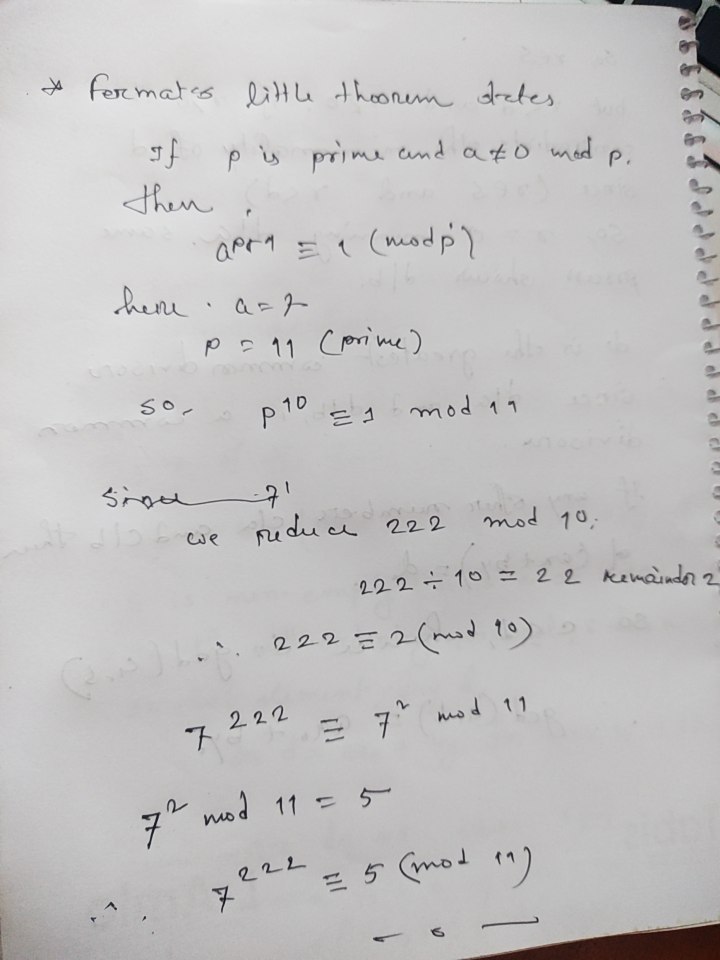 * Fermat's little thoorem states
If p is prime and a ≢ 0 mod p.
then,
a^{p-1} ≡ 1 (mod p)
here . a = 7
p = 11 (prime)
so, p^{10} ≡ 1 mod 11
we reduce 222 mod 10.
222 ÷ 10 = 22 remainder 2
∴ 222 ≡ 2 (mod 10)
7^{222} ≡ 7^2 mod 11
7^2 mod 11 = 5
∴ 7^{222} ≡ 5 (mod 11)